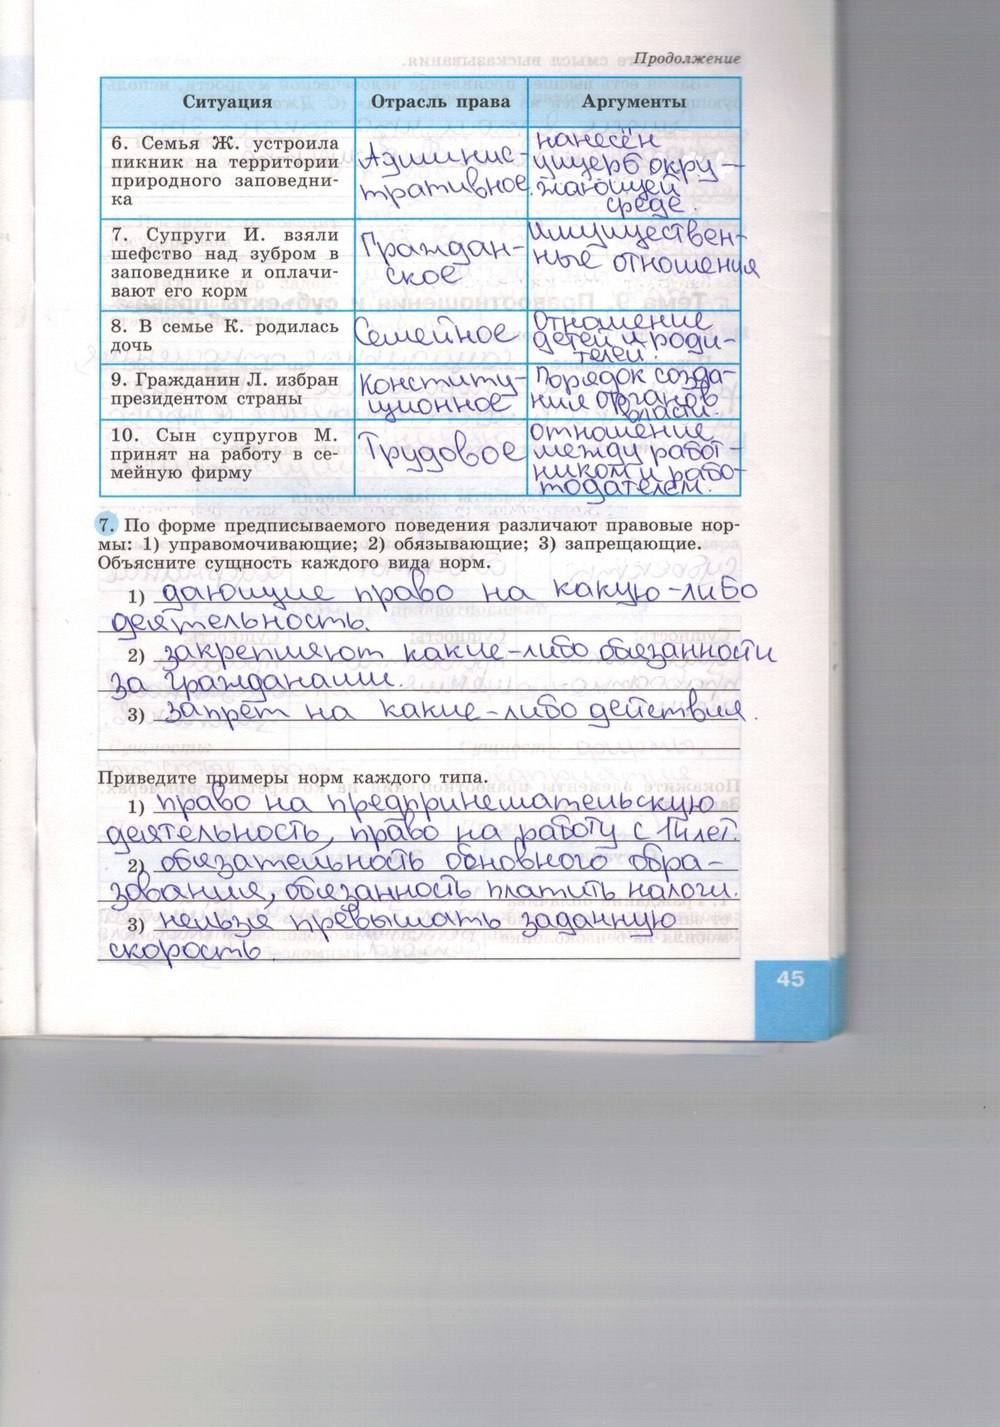 Продолжение
Ситуация
Отрасль права
Аргументы
6. Семья Ж. устроила
пикник на территории
природного заповедни-
ка
Админис-
тративное.
нанесён
ущерб окру-
жающей
среде.
7. Супруги И. взяли
шефство над зубром в
заповеднике и оплачи-
вают его корм
Граждан-
ское
Имуществен-
ные отношения
8. В семье К. родилась
дочь
Семейное
Отношение
детей и роди-
телей.
9. Гражданин Л. избран
президентом страны
Конститу-
ционное
Порядок созда-
ния органов
власти.
10. Сын супругов М.
принят на работу в се-
мейную фирму
Трудовое
отношение
между работ-
ником и рабо-
тодателем.
7. По форме предписываемого поведения различают правовые нор-
мы: 1) управомочивающие; 2) обязывающие; 3) запрещающие.
Объясните сущность каждого вида норм.
1) дающие право на какую-либо
деятельность.
2) закрепляют какие-либо обязанности
за гражданами.
3) запрет на какие-либо действия.
Приведите примеры норм каждого типа.
1) право на предпринемательскую
деятельность, право на работу с 14 лет.
2) обязательность основного обра-
зования, обязанность платить налоги.
3) нельзя превышать заданную
скорость.
45